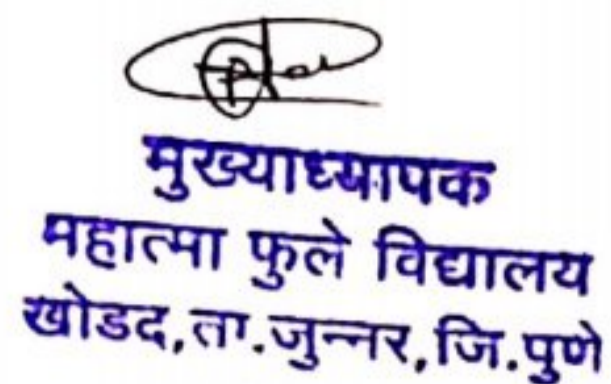 मुख्याध्यापक
महात्मा फुले विद्यालय
खोडद,ता.जुन्नर,जि.पुणे